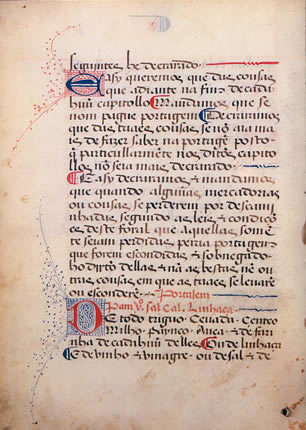 seguintes he decrarado.
E Asy queremos que das cousas
que adiante na fim de cada
huũ capitollo Mandamos que se
nom pague portagem Decraramos
que das taaes cousas se nõ aja mais
de fazer saber na portagẽ posto
q̃ particullarmẽte nos ditos capitollos
nõ seia mais decrarado.
E asy decraramos e mandamos
que quando algũas mercadorias
ou cousas se perderem por descaminhadas
segundo as leis e condições
deste foral que aquellas somẽte
seiam perdidas pera portagem
que forem escondidas e sobnegado
ho dyto dellas e nã as bestas nẽ outras
cousas em que as taaes se leuarem
ou esconderẽ.
Pam Vº. sal Cal. Linhaça.
De todo triguo Ceuada Centeo
Milho Paynço Auea e de farinha
de cada huũ delles Ou de linhaça
E de vinho e vinagre ou de sal e de